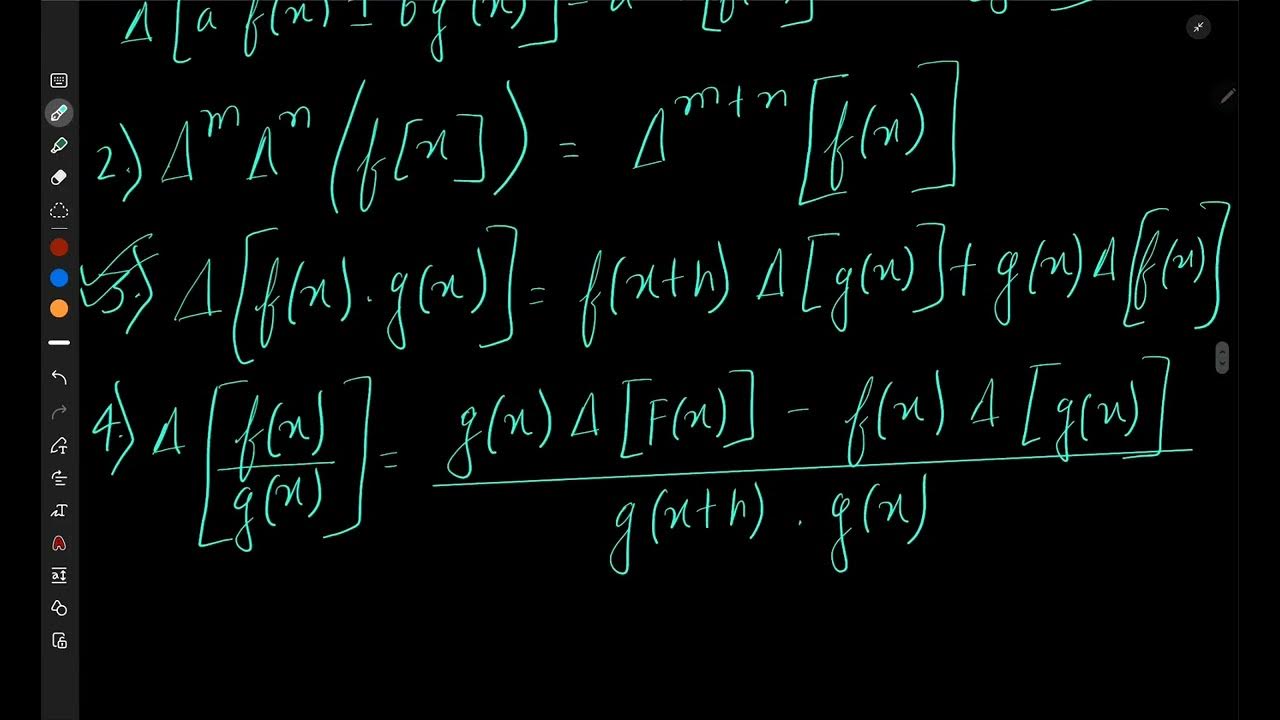 Δ[a f(x) ± b g(x)] = a
2.) Δ^m Δ^n (f[x]) = Δ^(m+n) [f(x)]
3.) Δ[f(x) · g(x)] = f(x+h) Δ[g(x)] + g(x) Δ[f(x)]
4.) Δ[f(x)/g(x)] = (g(x) Δ[F(x)] - f(x) Δ[g(x)])/(g(x+h) · g(x))